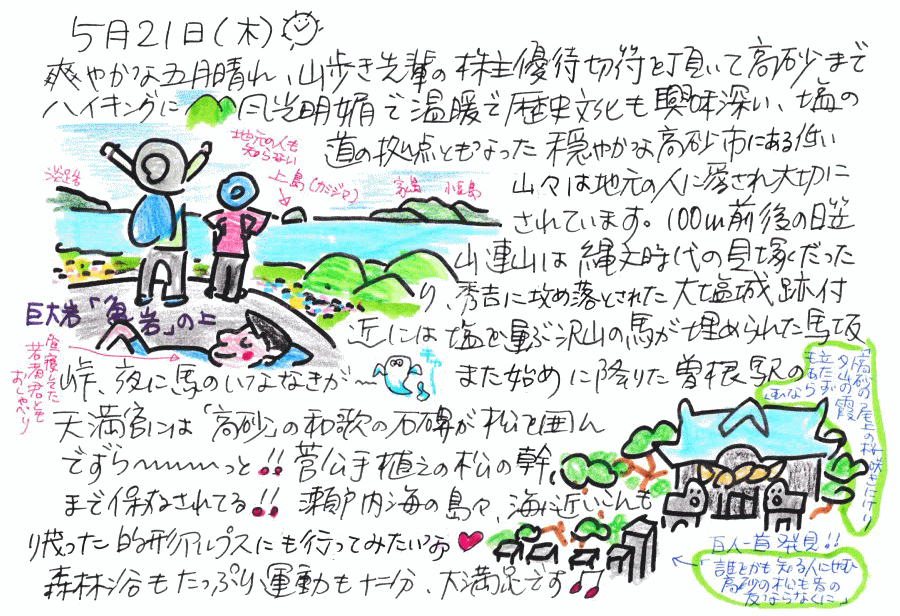 5月21日(木)
爽やかな五月晴れ、山歩き先輩の株主優待切符を頂いて高砂まで
ハイキングに 風光明媚で温暖で歴史文化も興味深い、塩の
道の拠点ともなった穏やかな高砂市にある低い
山々は地元の人に愛され大切に
されています。100m前後の日笠
山連山は縄文時代の貝塚だった
り、秀吉に攻め落とされた大塩城跡付
近には塩を運ぶ沢山の馬が埋められた馬坂
峠、夜に馬のいななきが〜
キャー
また始めに降りた曽根駅の
天満宮には「高砂」の和歌の石碑が松を囲ん
でずら〜〜〜っと!! 菅公手植えの松の幹
まで保存されてる!! 瀬戸内海の島々、海に近いこんも
り残った的形アルプスにも行ってみたいなぁ
森林浴もたっぷり運動も十分、大満足です♫
地元の人も
知らない
上島(カジマ)
淡路
家島
小豆島
巨大岩「魚岩」の上
昼寝してた
若者君とも
おしゃべり
「高砂の尾上の桜咲きにけり
外山の霞
立たず
もあらなむ」
百人一首発見!!
「誰をかも知る人にせむ
高砂の松も昔の
友ならなくに」